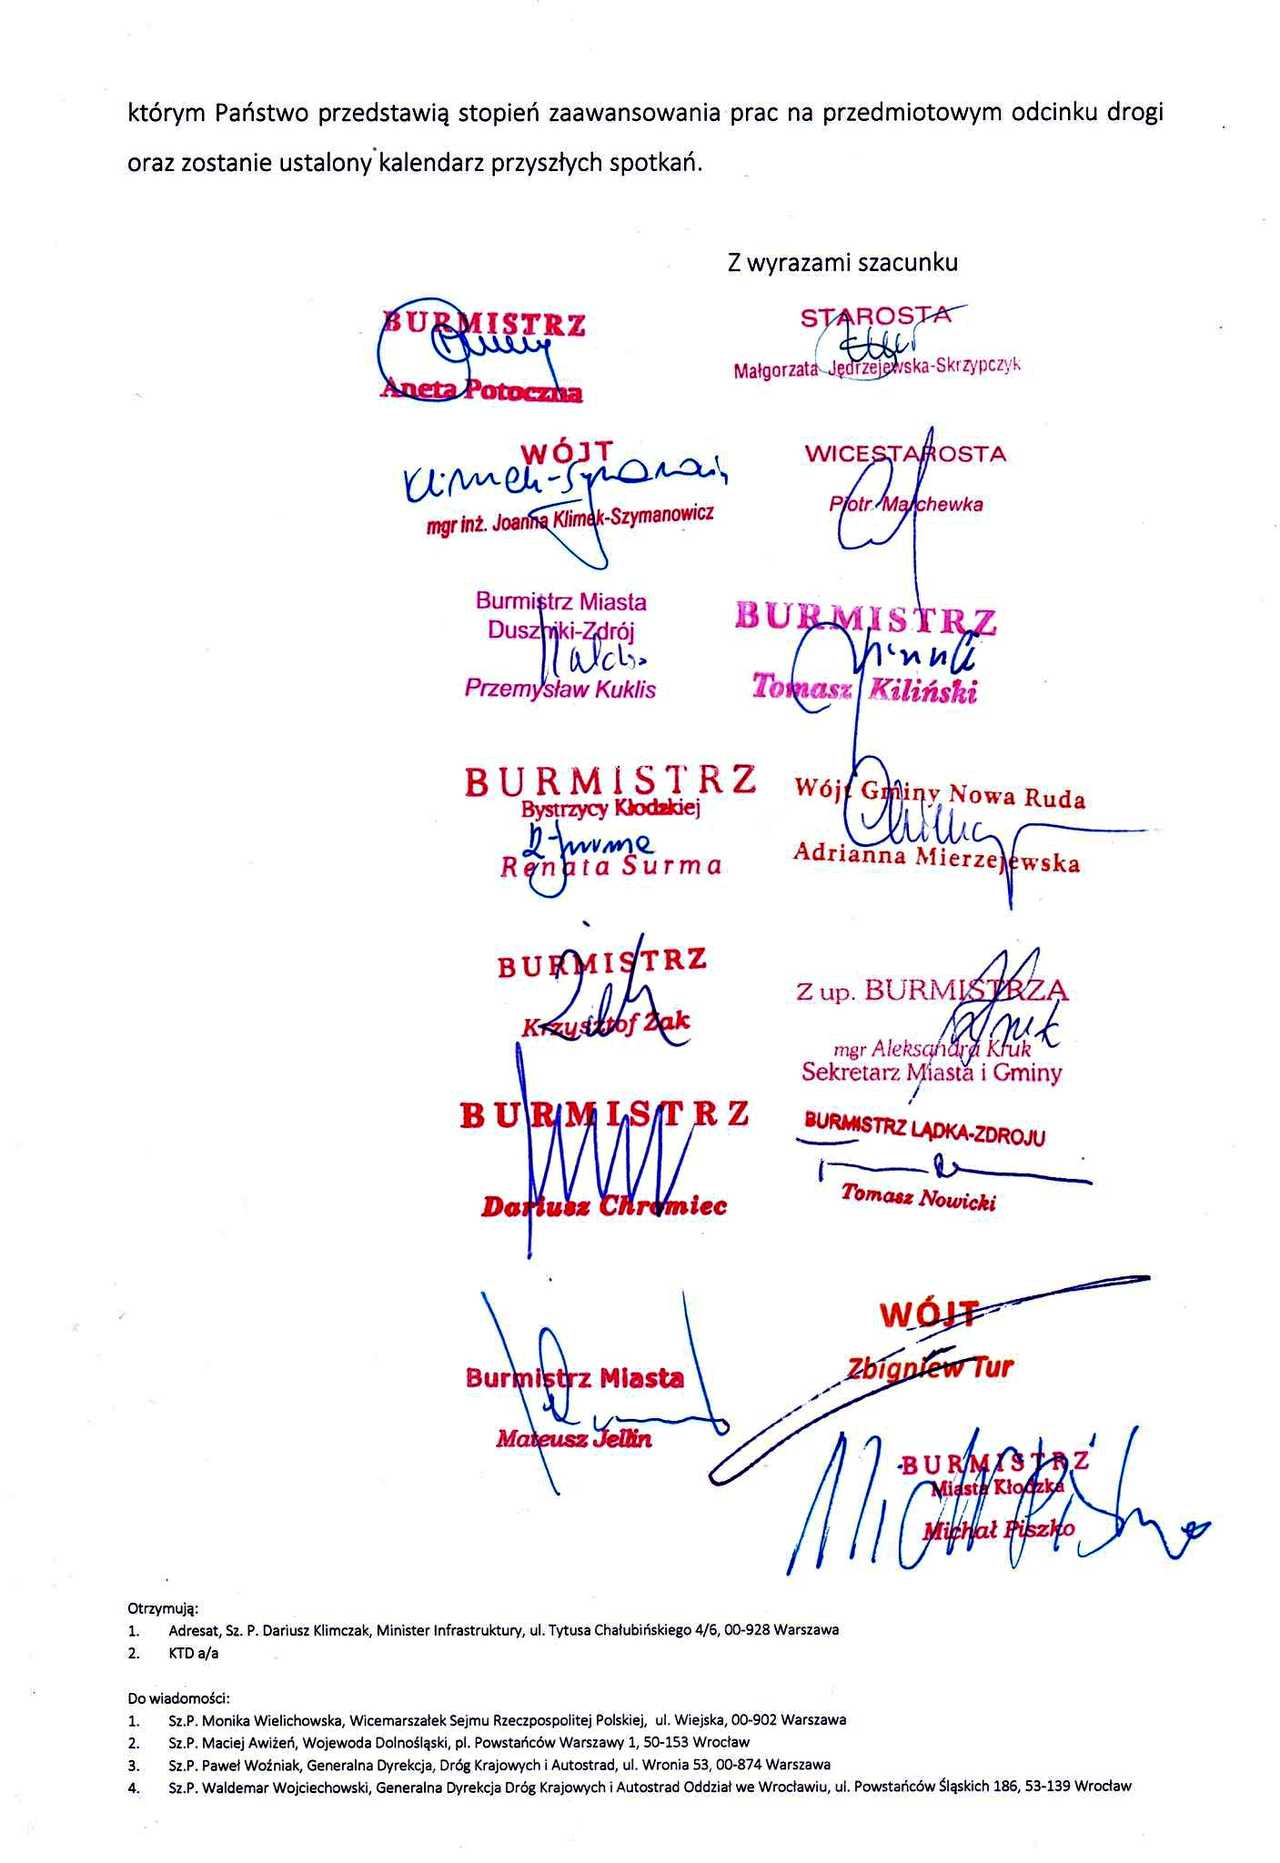 którym Państwo przedstawią stopień zaawansowania prac na przedmiotowym odcinku drogi
oraz zostanie ustalony kalendarz przyszłych spotkań.
Z wyrazami szacunku
BURMISTRZ
Aneta Potoczna
STAROSTA
Małgorzata Jędrzejewska-Skrzypczyk
WÓJT
Klimek-Szymanowicz
mgr inż. Joanna Klimek-Szymanowicz
WICESTAROSTA
Piotr Marchewka
Burmistrz Miasta
Duszniki-Zdrój
Przemysław Kuklis
BURMISTRZ
Tomasz Kiliński
BURMISTRZ
Bystrzycy Kłodzkiej
R. Surma
Renata Surma
Wójt Gminy Nowa Ruda
Adrianna Mierzejewska
BURMISTRZ
Krzysztof Żak
Z up. BURMISTRZA
mgr Aleksandra Kruk
Sekretarz Miasta i Gminy
BURMISTRZ
Dariusz Chromiec
BURMISTRZ LĄDKA-ZDROJU
Tomasz Nowicki
Burmistrz Miasta
Mateusz Jellin
WÓJT
Zbigniew Tur
BURMISTRZ
Miasta Kłodzka
Michał Piszko
Otrzymują:
1. Adresat, Sz. P. Dariusz Klimczak, Minister Infrastruktury, ul. Tytusa Chałubińskiego 4/6, 00-928 Warszawa
2. KTD a/a
Do wiadomości:
1. Sz.P. Monika Wielichowska, Wicemarszałek Sejmu Rzeczpospolitej Polskiej, ul. Wiejska, 00-902 Warszawa
2. Sz.P. Maciej Awiżeń, Wojewoda Dolnośląski, pl. Powstańców Warszawy 1, 50-153 Wrocław
3. Sz.P. Paweł Woźniak, Generalna Dyrekcja, Dróg Krajowych i Autostrad, ul. Wronia 53, 00-874 Warszawa
4. Sz.P. Waldemar Wojciechowski, Generalna Dyrekcja Dróg Krajowych i Autostrad Oddział we Wrocławiu, ul. Powstańców Śląskich 186, 53-139 Wrocław